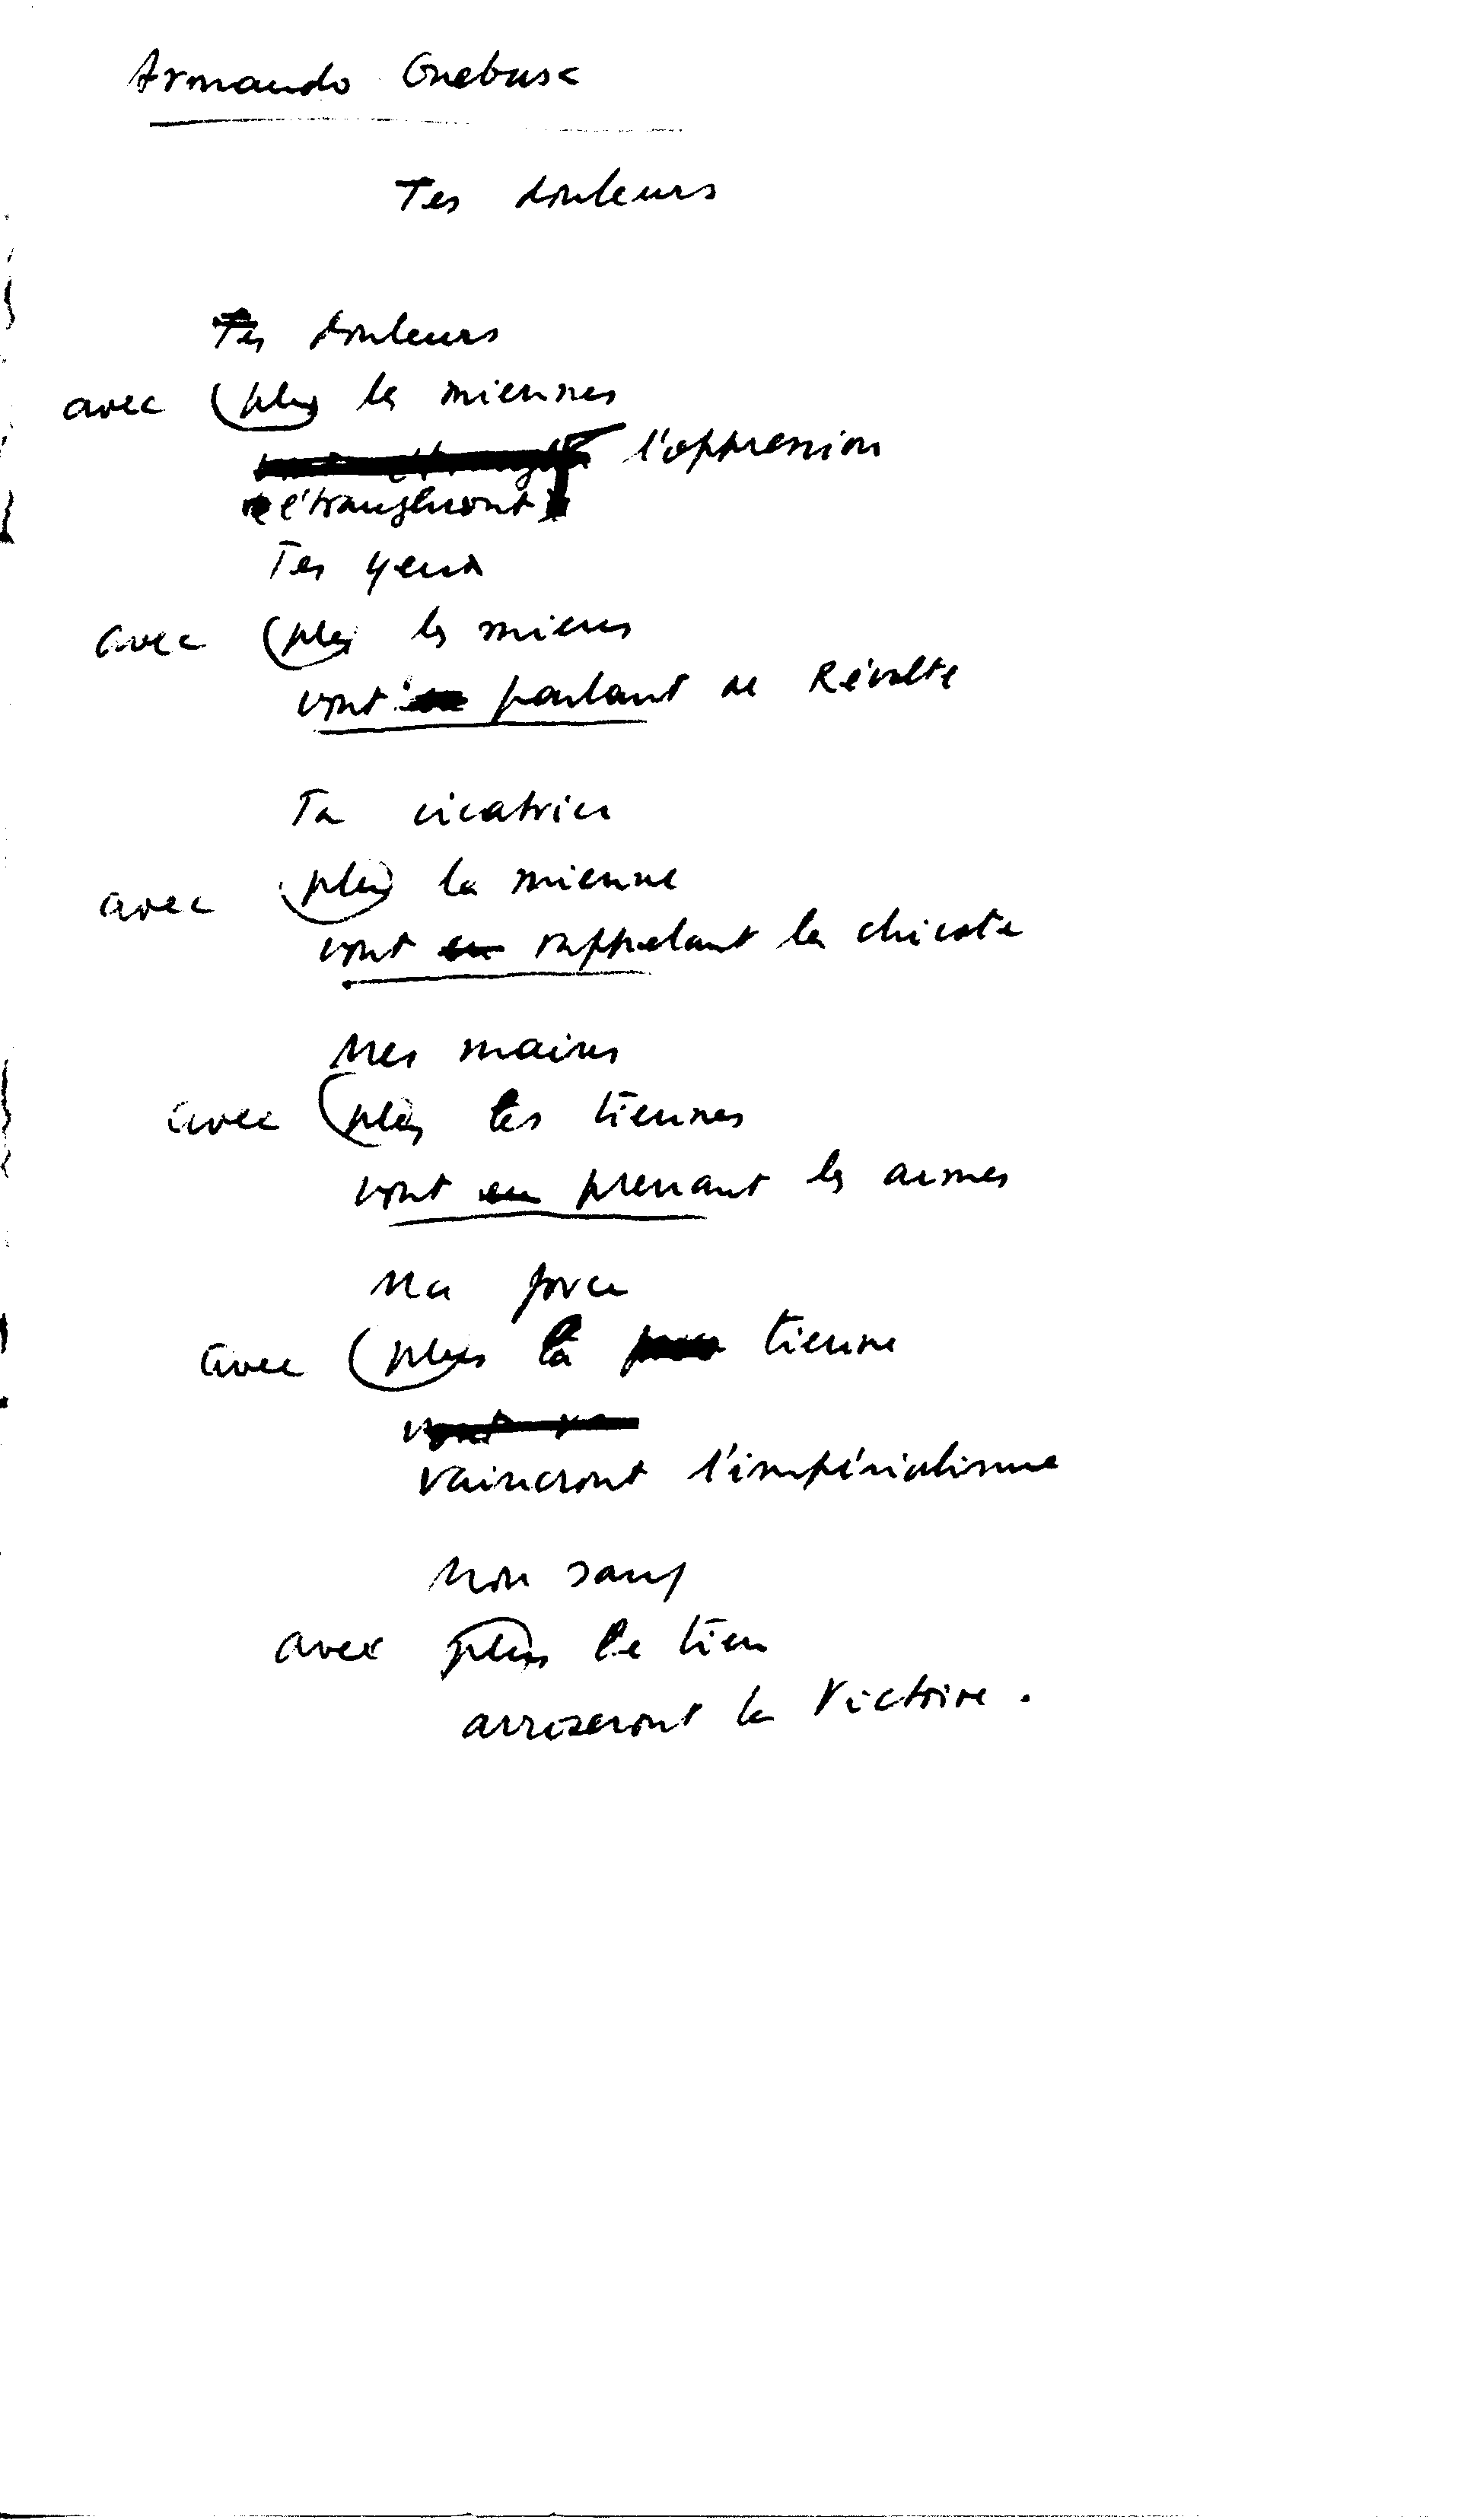 Armando Guebusa
Tes douleurs
Tes douleurs
avec (plus les miennes
l'oppression
étrangleront
Tes yeux
avec (plus les miens
vont parlant de Révolte
Ta cicatrice
avec (plus) la mienne
vont en rappelant la chicote
Mes mains
avec (plus les tiennes
vont en prenant les armes
Ma force
avec (plus la tienne
vaincront l'impérialisme
Mon sang
avec plus le tien
arroseront la Victoire.